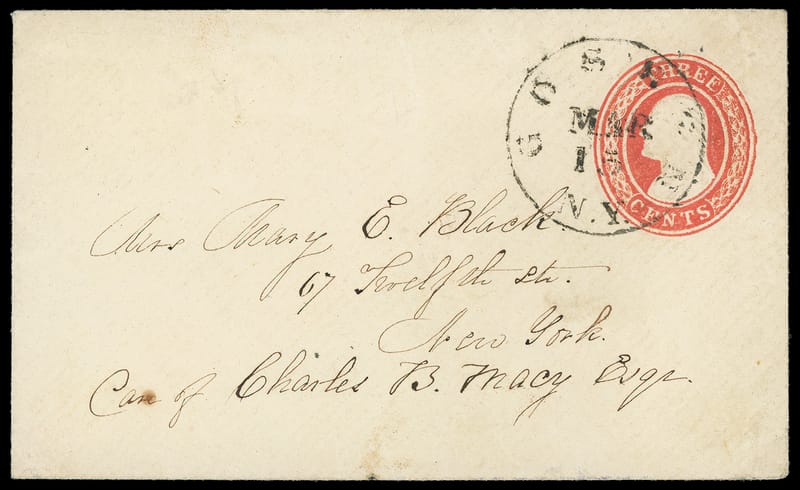 THREE
CENTS
GOSHEN
N.Y.
MAR
Mrs Mary E. Black
67 Twelfth St.
New York.
Care of Charles B. Macy Esqr.